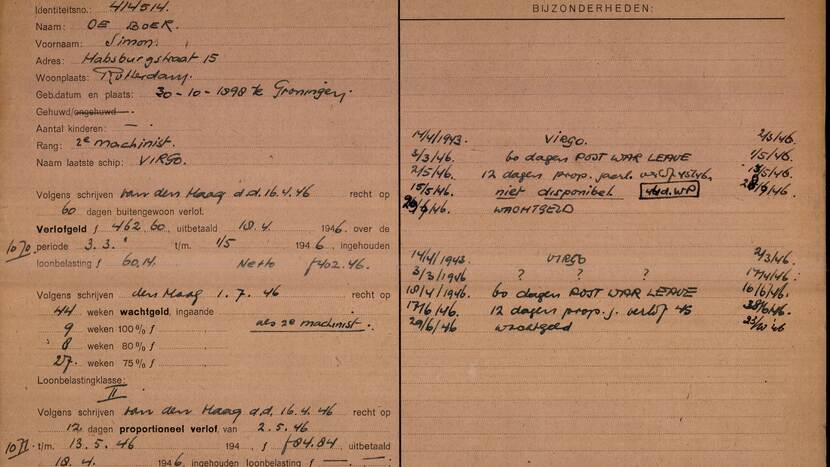 Identiteitsno.: 414514.
Naam: DE BOER.
Voornaam: Simon.
Adres: Habsburgstraat 15
Woonplaats: Rotterdam.
Geb.datum en plaats: 30-10-1898 te Groningen.
Gehuwd/ongehuwd
Aantal kinderen: —.
Rang: 2e machinist.
Naam laatste schip: VIRGO.
Volgens schrijven van den Haag d.d. 16.4.46 recht op
60 dagen buitengewoon verlof.
Verlofgeld ƒ 462.60, uitbetaald 18.4. 1946 over de
1070 periode 3.3. " t/m. 1/5 1946, ingehouden
loonbelasting ƒ 60,14. Netto ƒ402.46.
Volgens schrijven den Haag 1.7.46 recht op
44 weken wachtgeld, ingaande
9 weken 100% ƒ als 2e machinist.
8 weken 80% ƒ
27. weken 75% ƒ
Loonbelastingklasse:
II
Volgens schrijven van den Haag d.d. 16.4.46 recht op
12 dagen proportioneel verlof, van 2.5.46
1071 t/m. 13.5.46 194 ƒ ƒ84.84, uitbetaald
18.4. 1946 ingehouden loonbelasting ƒ —.—
BIJZONDERHEDEN:
14/4/1943. VIRGO. 2/3/46.
3/3/46. 60 dagen POST WAR LEAVE 1/5/46.
2/5/46. 12 dagen prop. verlof 45/46. /5/46.
15/5/46. niet disponibel. WP /46.
/46. WACHTGELD
14/4/1943. VIRGO 2/3/46.
3/3/1946 ? ? ? 17/4/46.
18/4/1946. 60 dagen POST WAR LEAVE 16/6/46.
17/6/46. 12 dagen prop. j. verlof 45 28/6/46.
29/6/46 wachtgeld